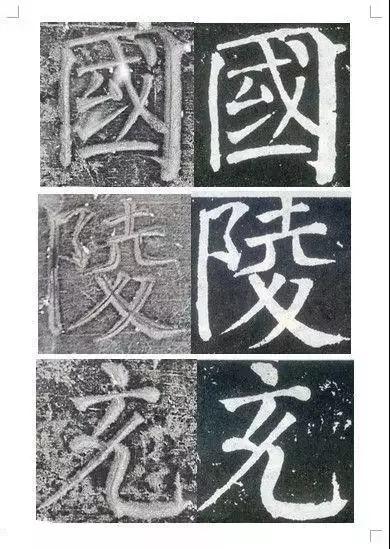 國 國
陵 陵
充 充